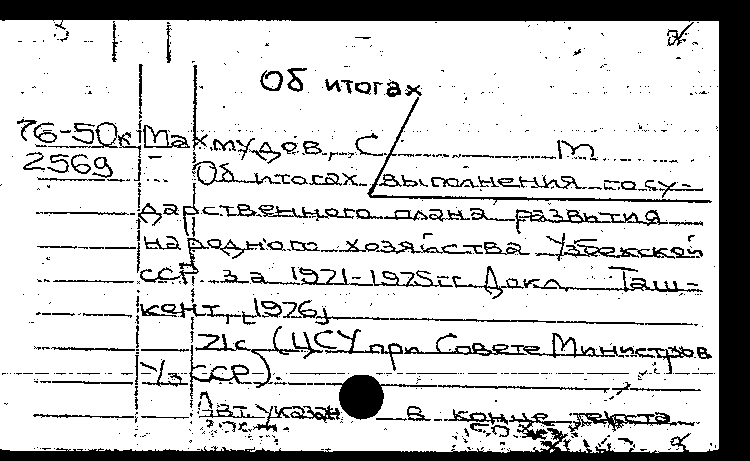 Об итогах
76-50к Махмудов, С М
2569 Об итогах выполнения госу-
дарственного плана развития
народного хозяйства Узбекской
ССР за 1971-1975гг. Докл. Таш-
кент, [1976]
21с (ЦСУ при Совете Министров
УзССР).
Авт. указан в конце текста